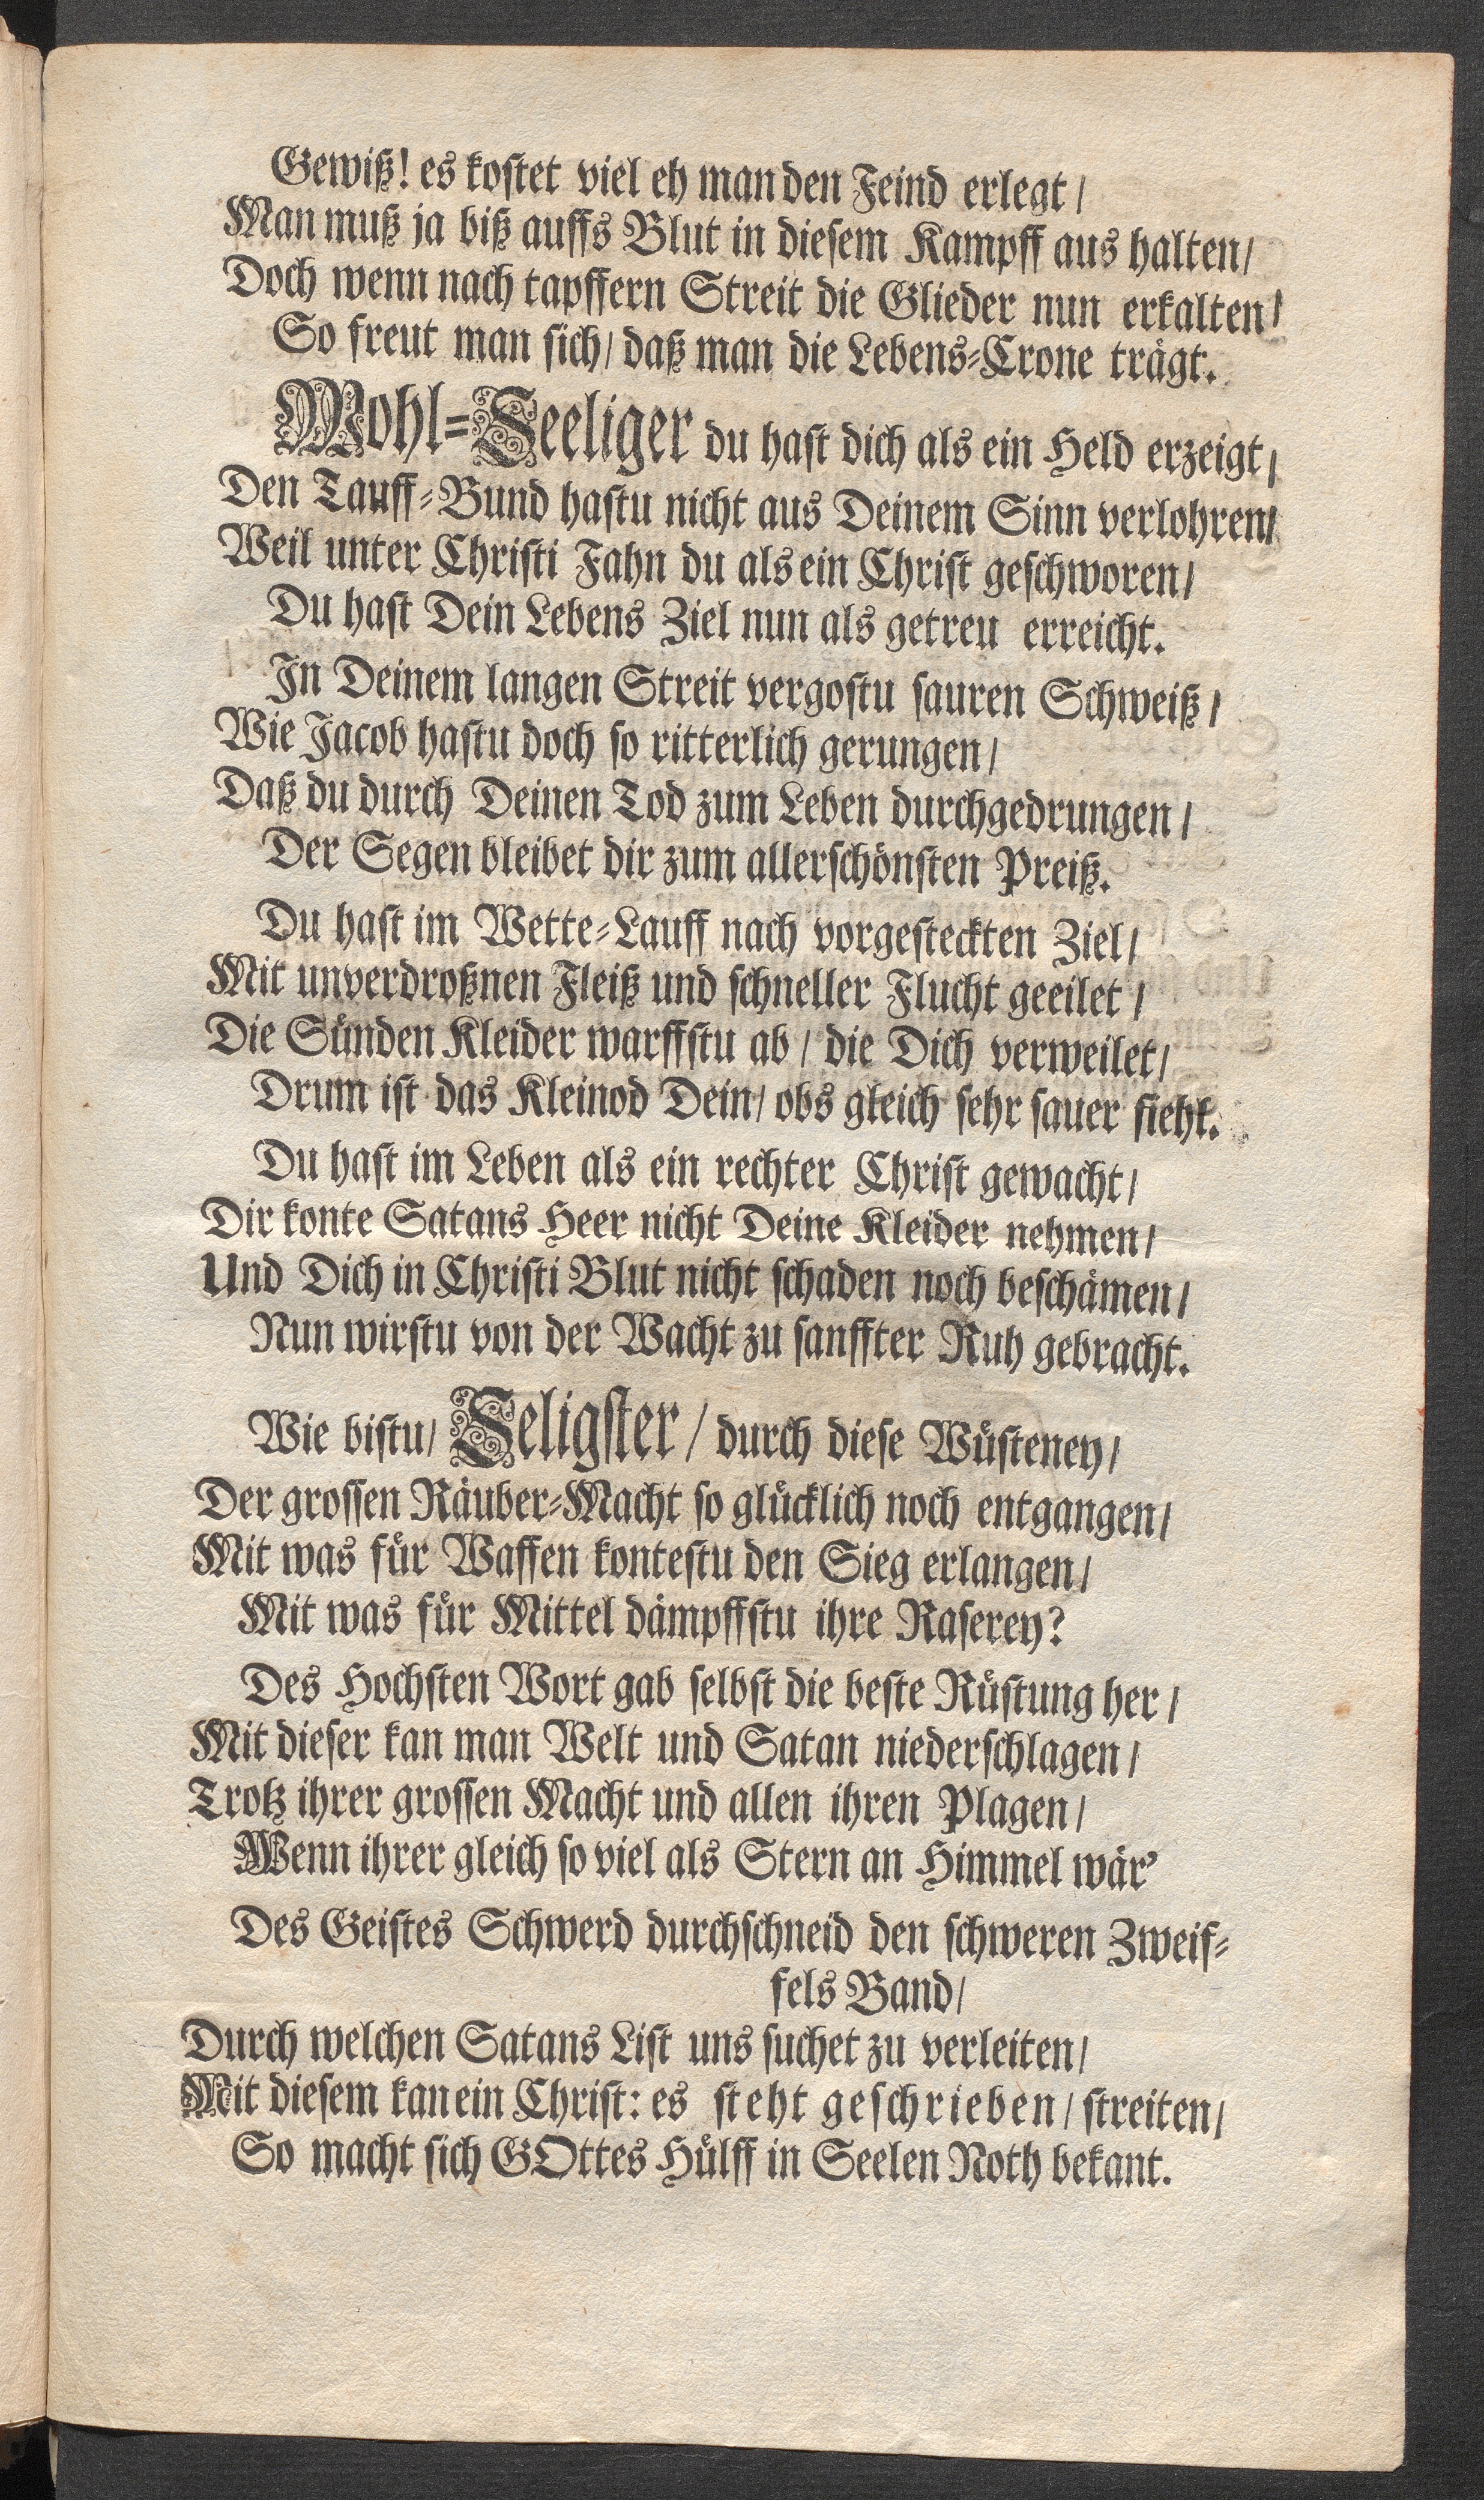 Gewiß! es kostet viel eh man den Feind erlegt/
Man muß ja biß auffs Blut in diesem Kampff aus halten/
Doch wenn nach tapffern Streit die Glieder nun erkalten/
So freut man sich/ daß man die Lebens-Crone trägt.
Wohl-Seeliger du hast dich als ein Held erzeigt/
Den Tauff-Bund hastu nicht aus Deinem Sinn verlohren/
Weil unter Christi Fahn du als ein Christ geschworen/
Du hast Dein Lebens Ziel nun als getreu erreicht.
In Deinem langen Streit vergostu sauren Schweiß/
Wie Jacob hastu doch so ritterlich gerungen/
Daß du durch Deinen Tod zum Leben durchgedrungen/
Der Segen bleibet dir zum allerschönsten Preiß.
Du hast im Wette-Lauff nach vorgesteckten Ziel/
Mit unverdroßnen Fleiß und schneller Flucht geeilet/
Die Sünden Kleider warffstu ab/ die Dich verweilet/
Drum ist das Kleinod Dein/ obs gleich sehr sauer fiehl.
Du hast im Leben als ein rechter Christ gewacht/
Dir konte Satans Heer nicht Deine Kleider nehmen/
Und Dich in Christi Blut nicht schaden noch beschämen/
Nun wirstu von der Wacht zu sanffter Ruh gebracht.
Wie bistu/ Seligster/ durch diese Wüsteney/
Der grossen Räuber-Macht so glücklich noch entgangen/
Mit was für Waffen kontestu den Sieg erlangen/
Mit was für Mittel dämpffstu ihre Raserey?
Des Hochsten Wort gab selbst die beste Rüstung her/
Mit dieser kan man Welt und Satan niederschlagen/
Trotz ihrer grossen Macht und allen ihren Plagen/
Wenn ihrer gleich so viel als Stern an Himmel wär'
Des Geistes Schwerd durchschneid den schweren Zweif-
fels Band/
Durch welchen Satans List uns suchet zu verleiten/
Mit diesem kan ein Christ: es steht geschrieben/ streiten/
So macht sich GOttes Hülff in Seelen Noth bekant.